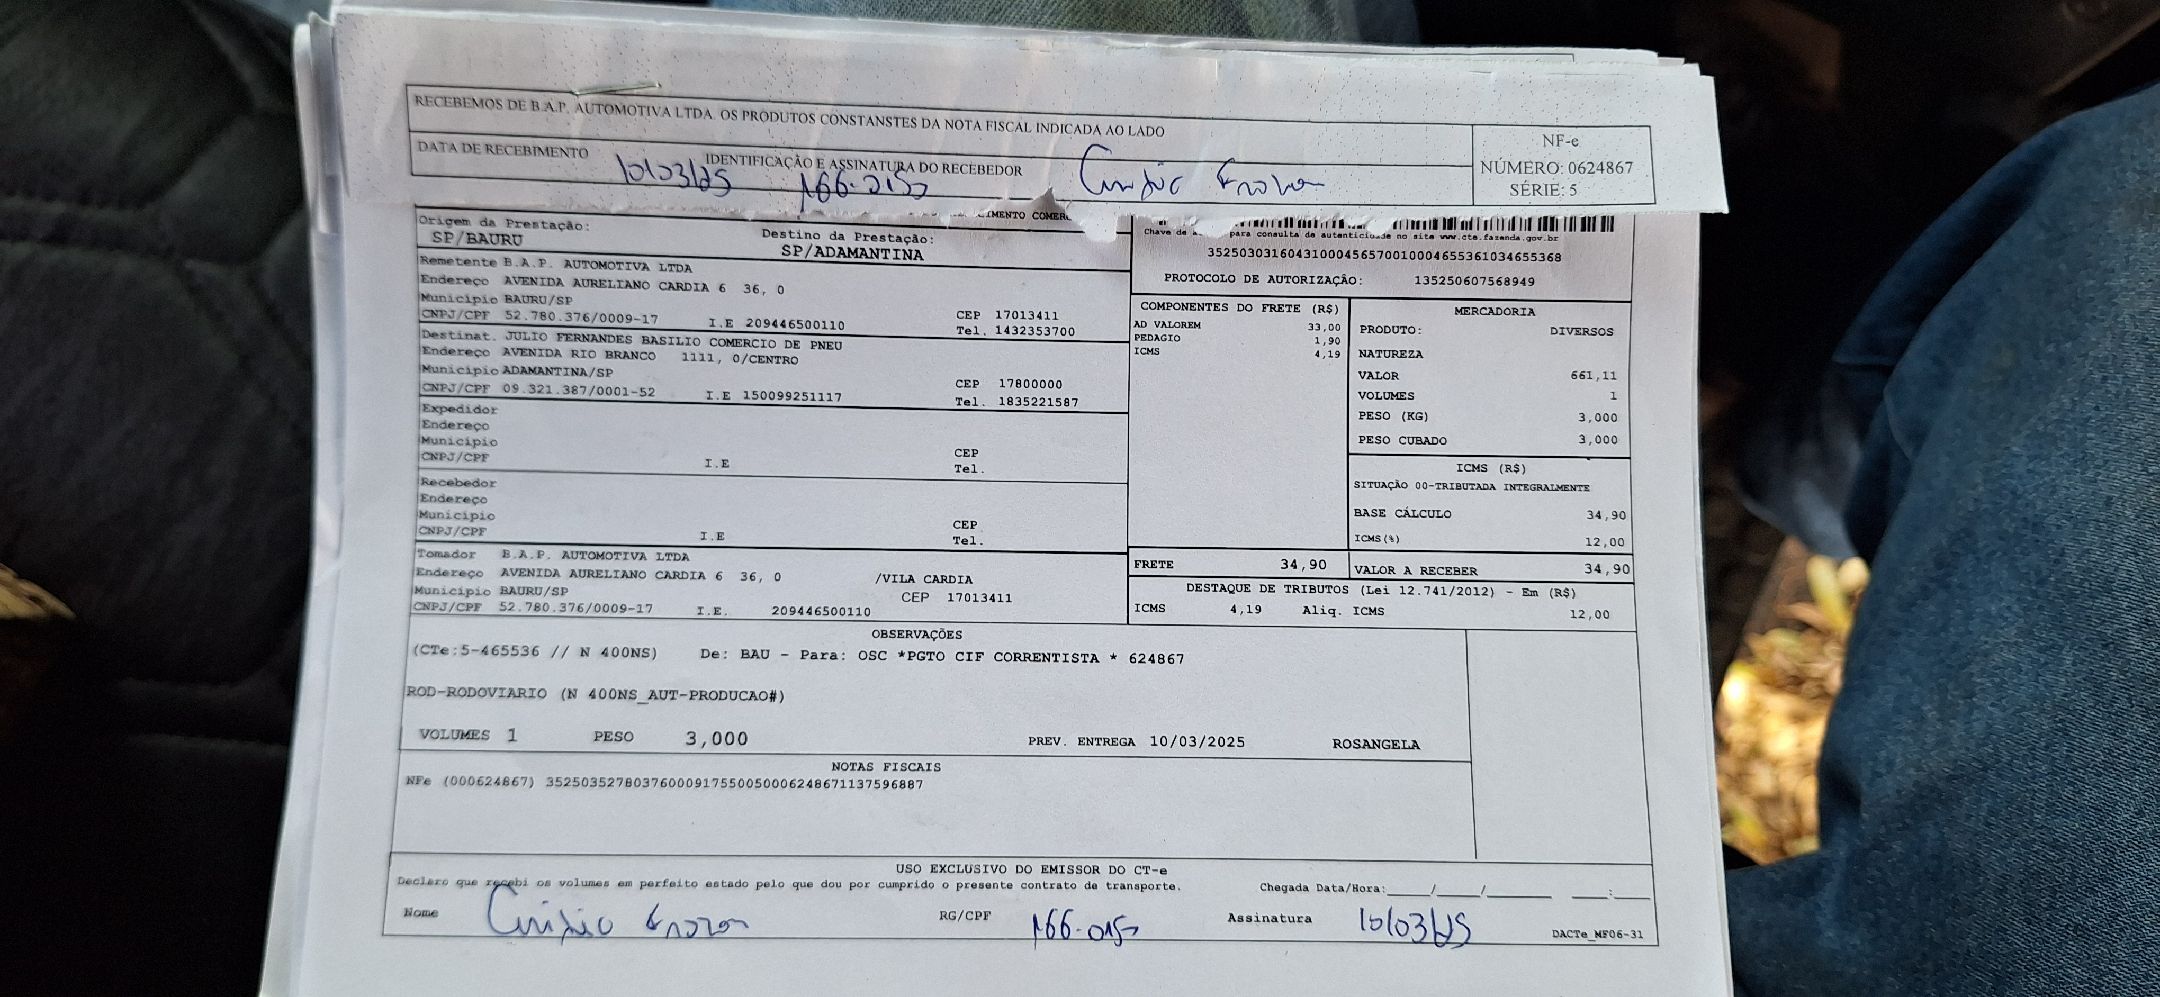 RECEBEMOS DE B.A.P. AUTOMOTIVA LTDA. OS PRODUTOS CONSTANSTES DA NOTA FISCAL INDICADA AO LADO
DATA DE RECEBIMENTO
IDENTIFICAÇÃO E ASSINATURA DO RECEBEDOR
NF-e
NÚMERO: 0624867
SÉRIE: 5
10/03/25
166.015
Origem da Prestação:
SP/BAURU
Destino da Prestação:
SP/ADAMANTINA
Remetente B.A.P. AUTOMOTIVA LTDA
Endereço AVENIDA AURELIANO CARDIA 6 36, 0
Município BAURU/SP CEP 17013411
CNPJ/CPF 52.780.376/0009-17 I.E 209446500110 Tel. 1432353700
Destinat. JULIO FERNANDES BASILIO COMERCIO DE PNEU
Endereço AVENIDA RIO BRANCO 1111, 0/CENTRO
Município ADAMANTINA/SP CEP 17800000
CNPJ/CPF 09.321.387/0001-52 I.E 150099251117 Tel. 1835221587
Expedidor
Endereço
Município CEP
CNPJ/CPF I.E Tel.
Recebedor
Endereço
Município CEP
CNPJ/CPF I.E Tel.
Tomador B.A.P. AUTOMOTIVA LTDA
Endereço AVENIDA AURELIANO CARDIA 6 36, 0 /VILA CARDIA
Município BAURU/SP CEP 17013411
CNPJ/CPF 52.780.376/0009-17 I.E. 209446500110
Chave de para consulta de autenticidade no site www.cte.fazenda.gov.br
35250303160431000456570010004655361034655368
PROTOCOLO DE AUTORIZAÇÃO: 135250607568949
COMPONENTES DO FRETE (R$)
AD VALOREM 33,00
PEDAGIO 1,90
ICMS 4,19
MERCADORIA
PRODUTO: DIVERSOS
NATUREZA
VALOR 661,11
VOLUMES 1
PESO (KG) 3,000
PESO CUBADO 3,000
ICMS (R$)
SITUAÇÃO 00-TRIBUTADA INTEGRALMENTE
BASE CÁLCULO 34,90
ICMS(%) 12,00
FRETE 34,90
VALOR A RECEBER 34,90
DESTAQUE DE TRIBUTOS (Lei 12.741/2012) - Em (R$)
ICMS 4,19 Aliq. ICMS 12,00
OBSERVAÇÕES
(CTe:5-465536 // N 400NS) De: BAU - Para: OSC *PGTO CIF CORRENTISTA * 624867
ROD-RODOVIARIO (N 400NS_AUT-PRODUCAO#)
VOLUMES 1 PESO 3,000 PREV. ENTREGA 10/03/2025 ROSANGELA
NOTAS FISCAIS
NFe (000624867) 35250352780376000917550050006248671137596887
USO EXCLUSIVO DO EMISSOR DO CT-e
Declaro que recebi os volumes em perfeito estado pelo que dou por cumprido o presente contrato de transporte.
Chegada Data/Hora:____/____/______ ___:___
Nome
RG/CPF 166.015
Assinatura 10/03/25
DACTe_MF06-31